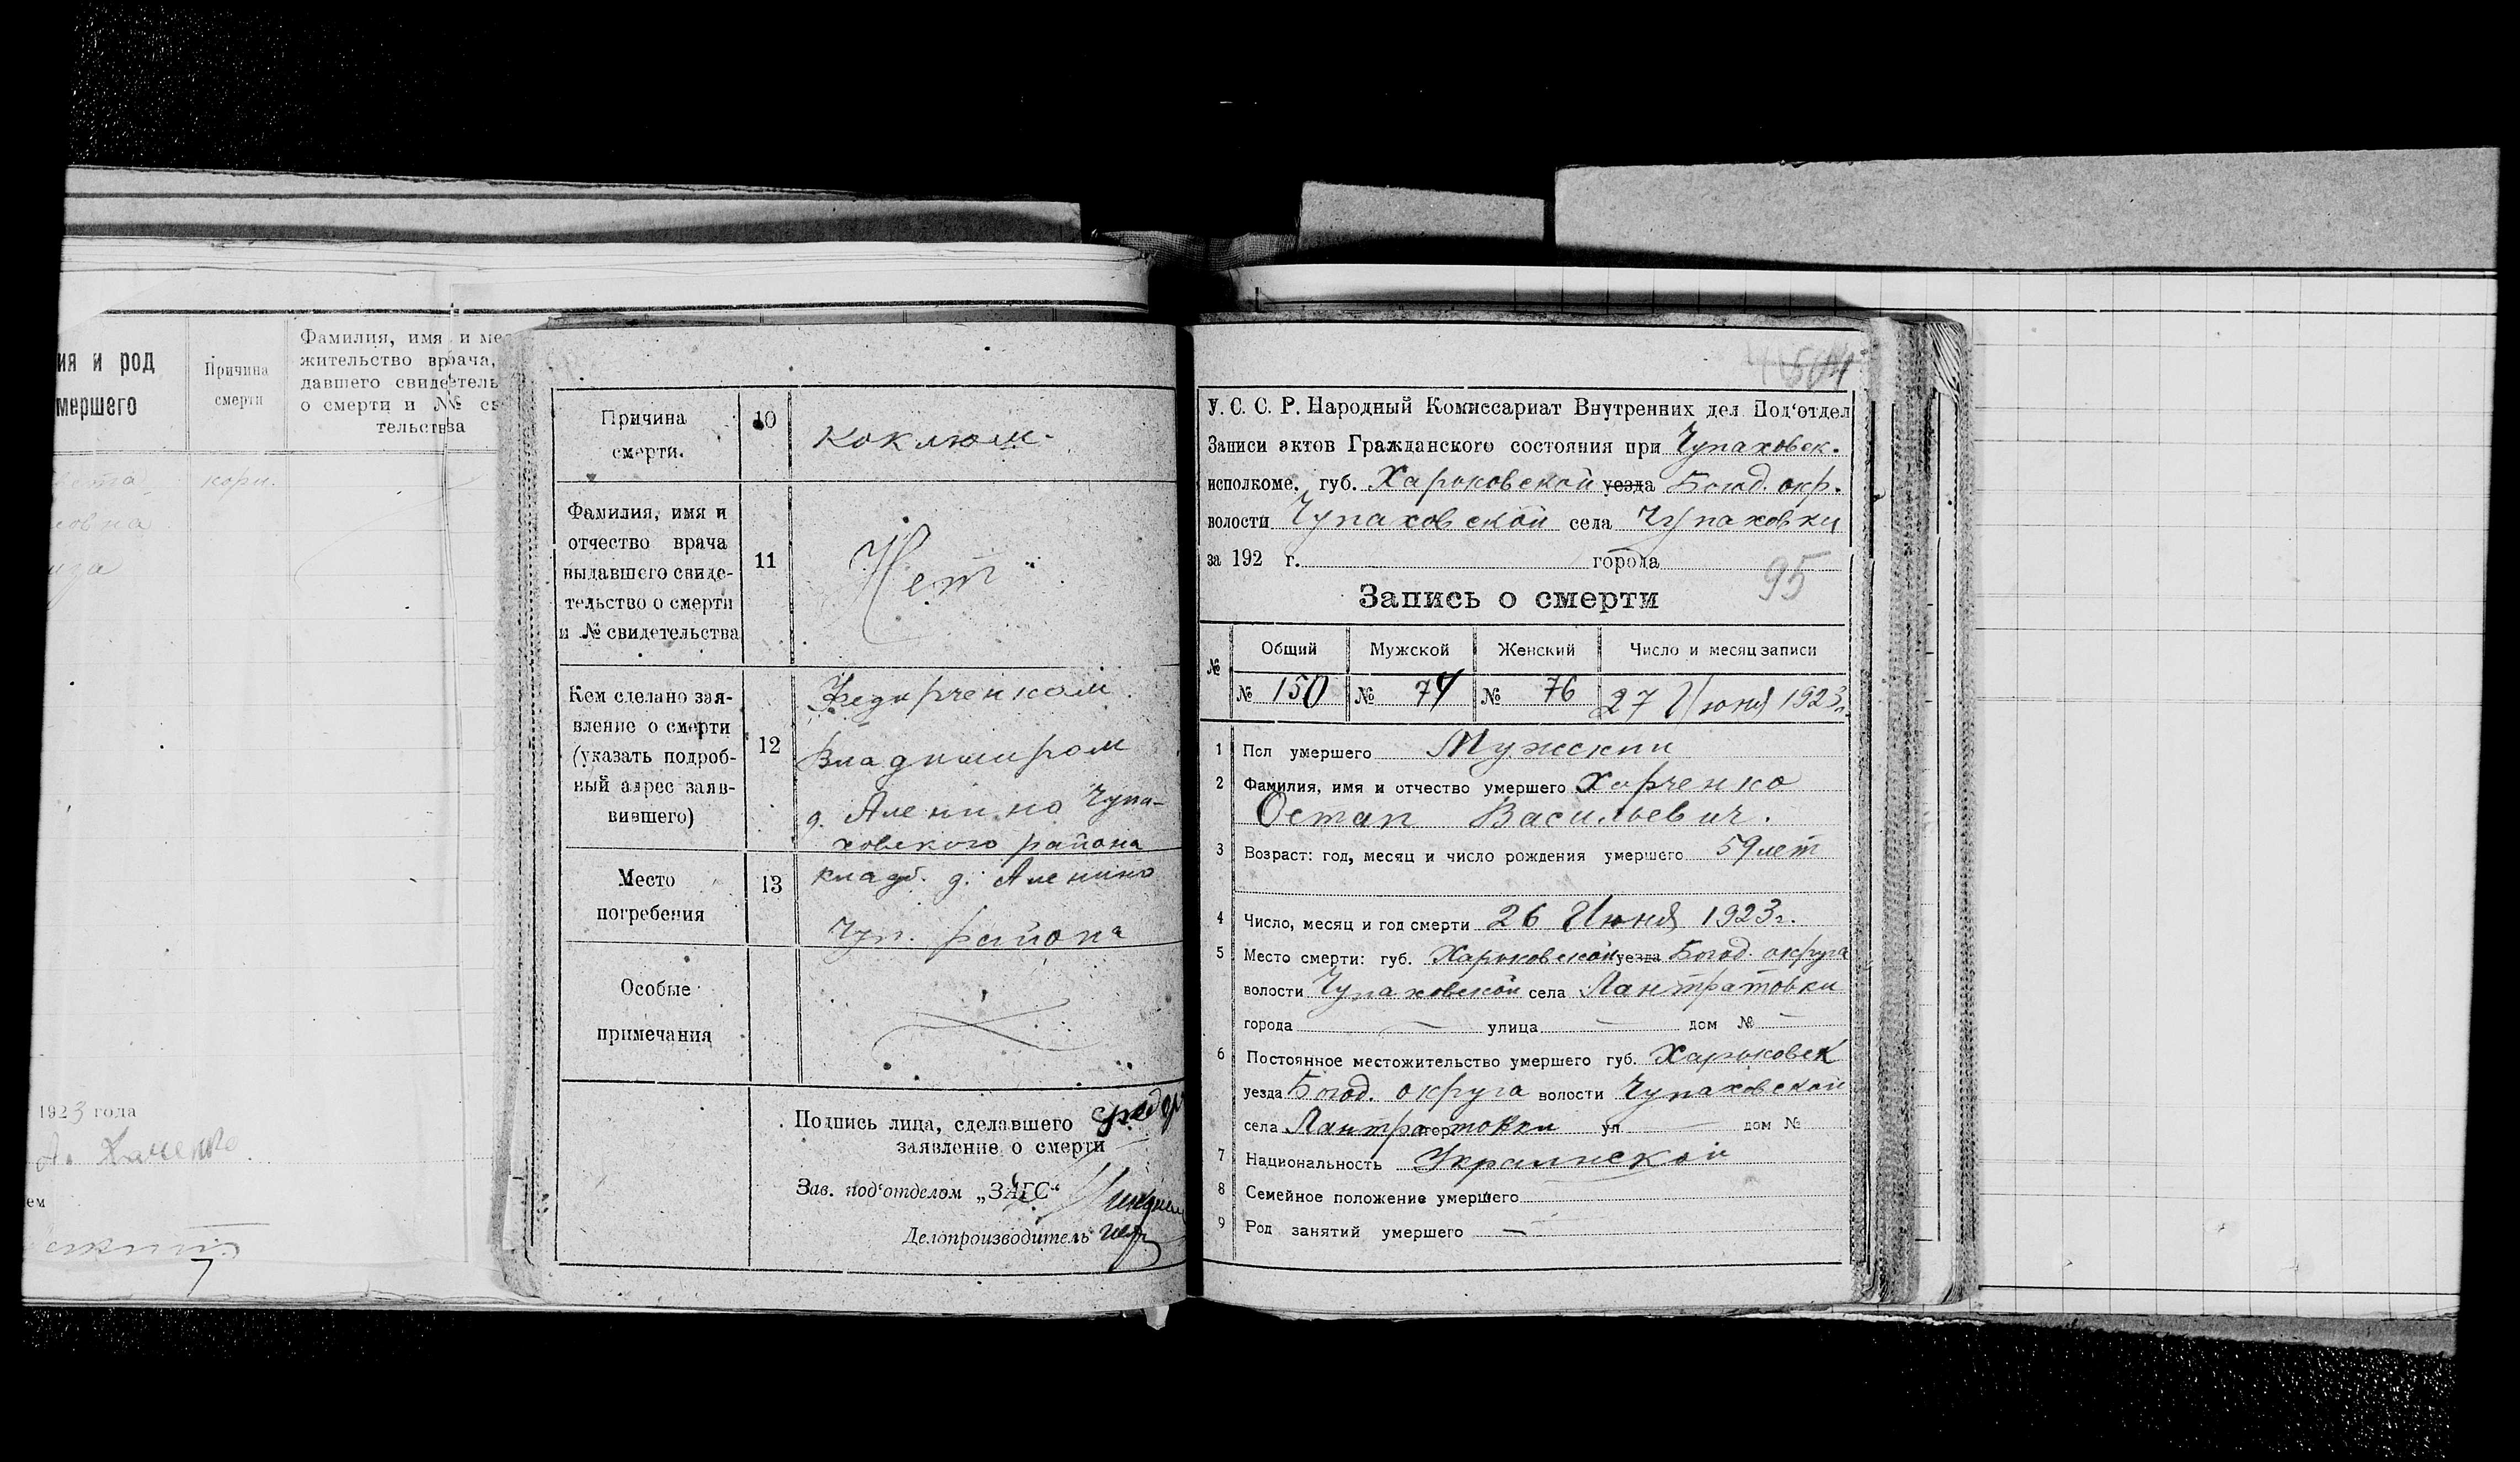 ия и род
мершего
Причина
смерти
Фамилия, имя и ме
жительство врача,
давшего свидетель
о смерти и № св
тельства
кори.
1923 года
ем
Причина
смерти.
10
Коклюш.
Фамилия, имя и
отчество врача
выдавшего свиде-
тельство о смерти
и № свидетельства
11
Нет
Кем сделано зая-
вление о смерти
(указать подроб-
ный адрес заяв-
вившего)
12
Федорченком
Владимиром
д. Аленино Чупа-
ховского района
Место
погребения
13
кладб. д. Аленино
Чуп. района
Особые
примечания
Подпись лица, сделавшего
заявление о смерти
Зав. под'отделом „ЗАГС“
Делопроизводитель
504
У. С. С. Р. Народный Комиссариат Внутренних дел Под'отдел
Записи актов Гражданского состояния при Чупаховск.
исполкоме. губ. Харьковской уезда Богод. окр.
волости Чупаховской села Чупаховки
за 192 г. города
95
Запись о смерти
№
Общий
Мужской
Женский
Число и месяц записи
№ 150
№ 74
№ 76
27 Июня 1923г.
1 Пол умершего Мужскии
2 Фамилия, имя и отчество умершего Харченко
Остап Васильевич.
3 Возраст: год, месяц и число рождения умершего 59 лет
4 Число, месяц и год смерти 26 Июня 1923г.
5 Место смерти: губ. Харьковской уезда Богод. округа
волости Чупаховской села Лантратовки
города — улица — дом № —
6 Постоянное местожительство умершего губ. Харьковск
уезда Богод. округа волости Чупаховской
села Лантратовки гор ул — дом №
7 Национальность Украинской
8 Семейное положение умершего
9 Род занятий умершего —